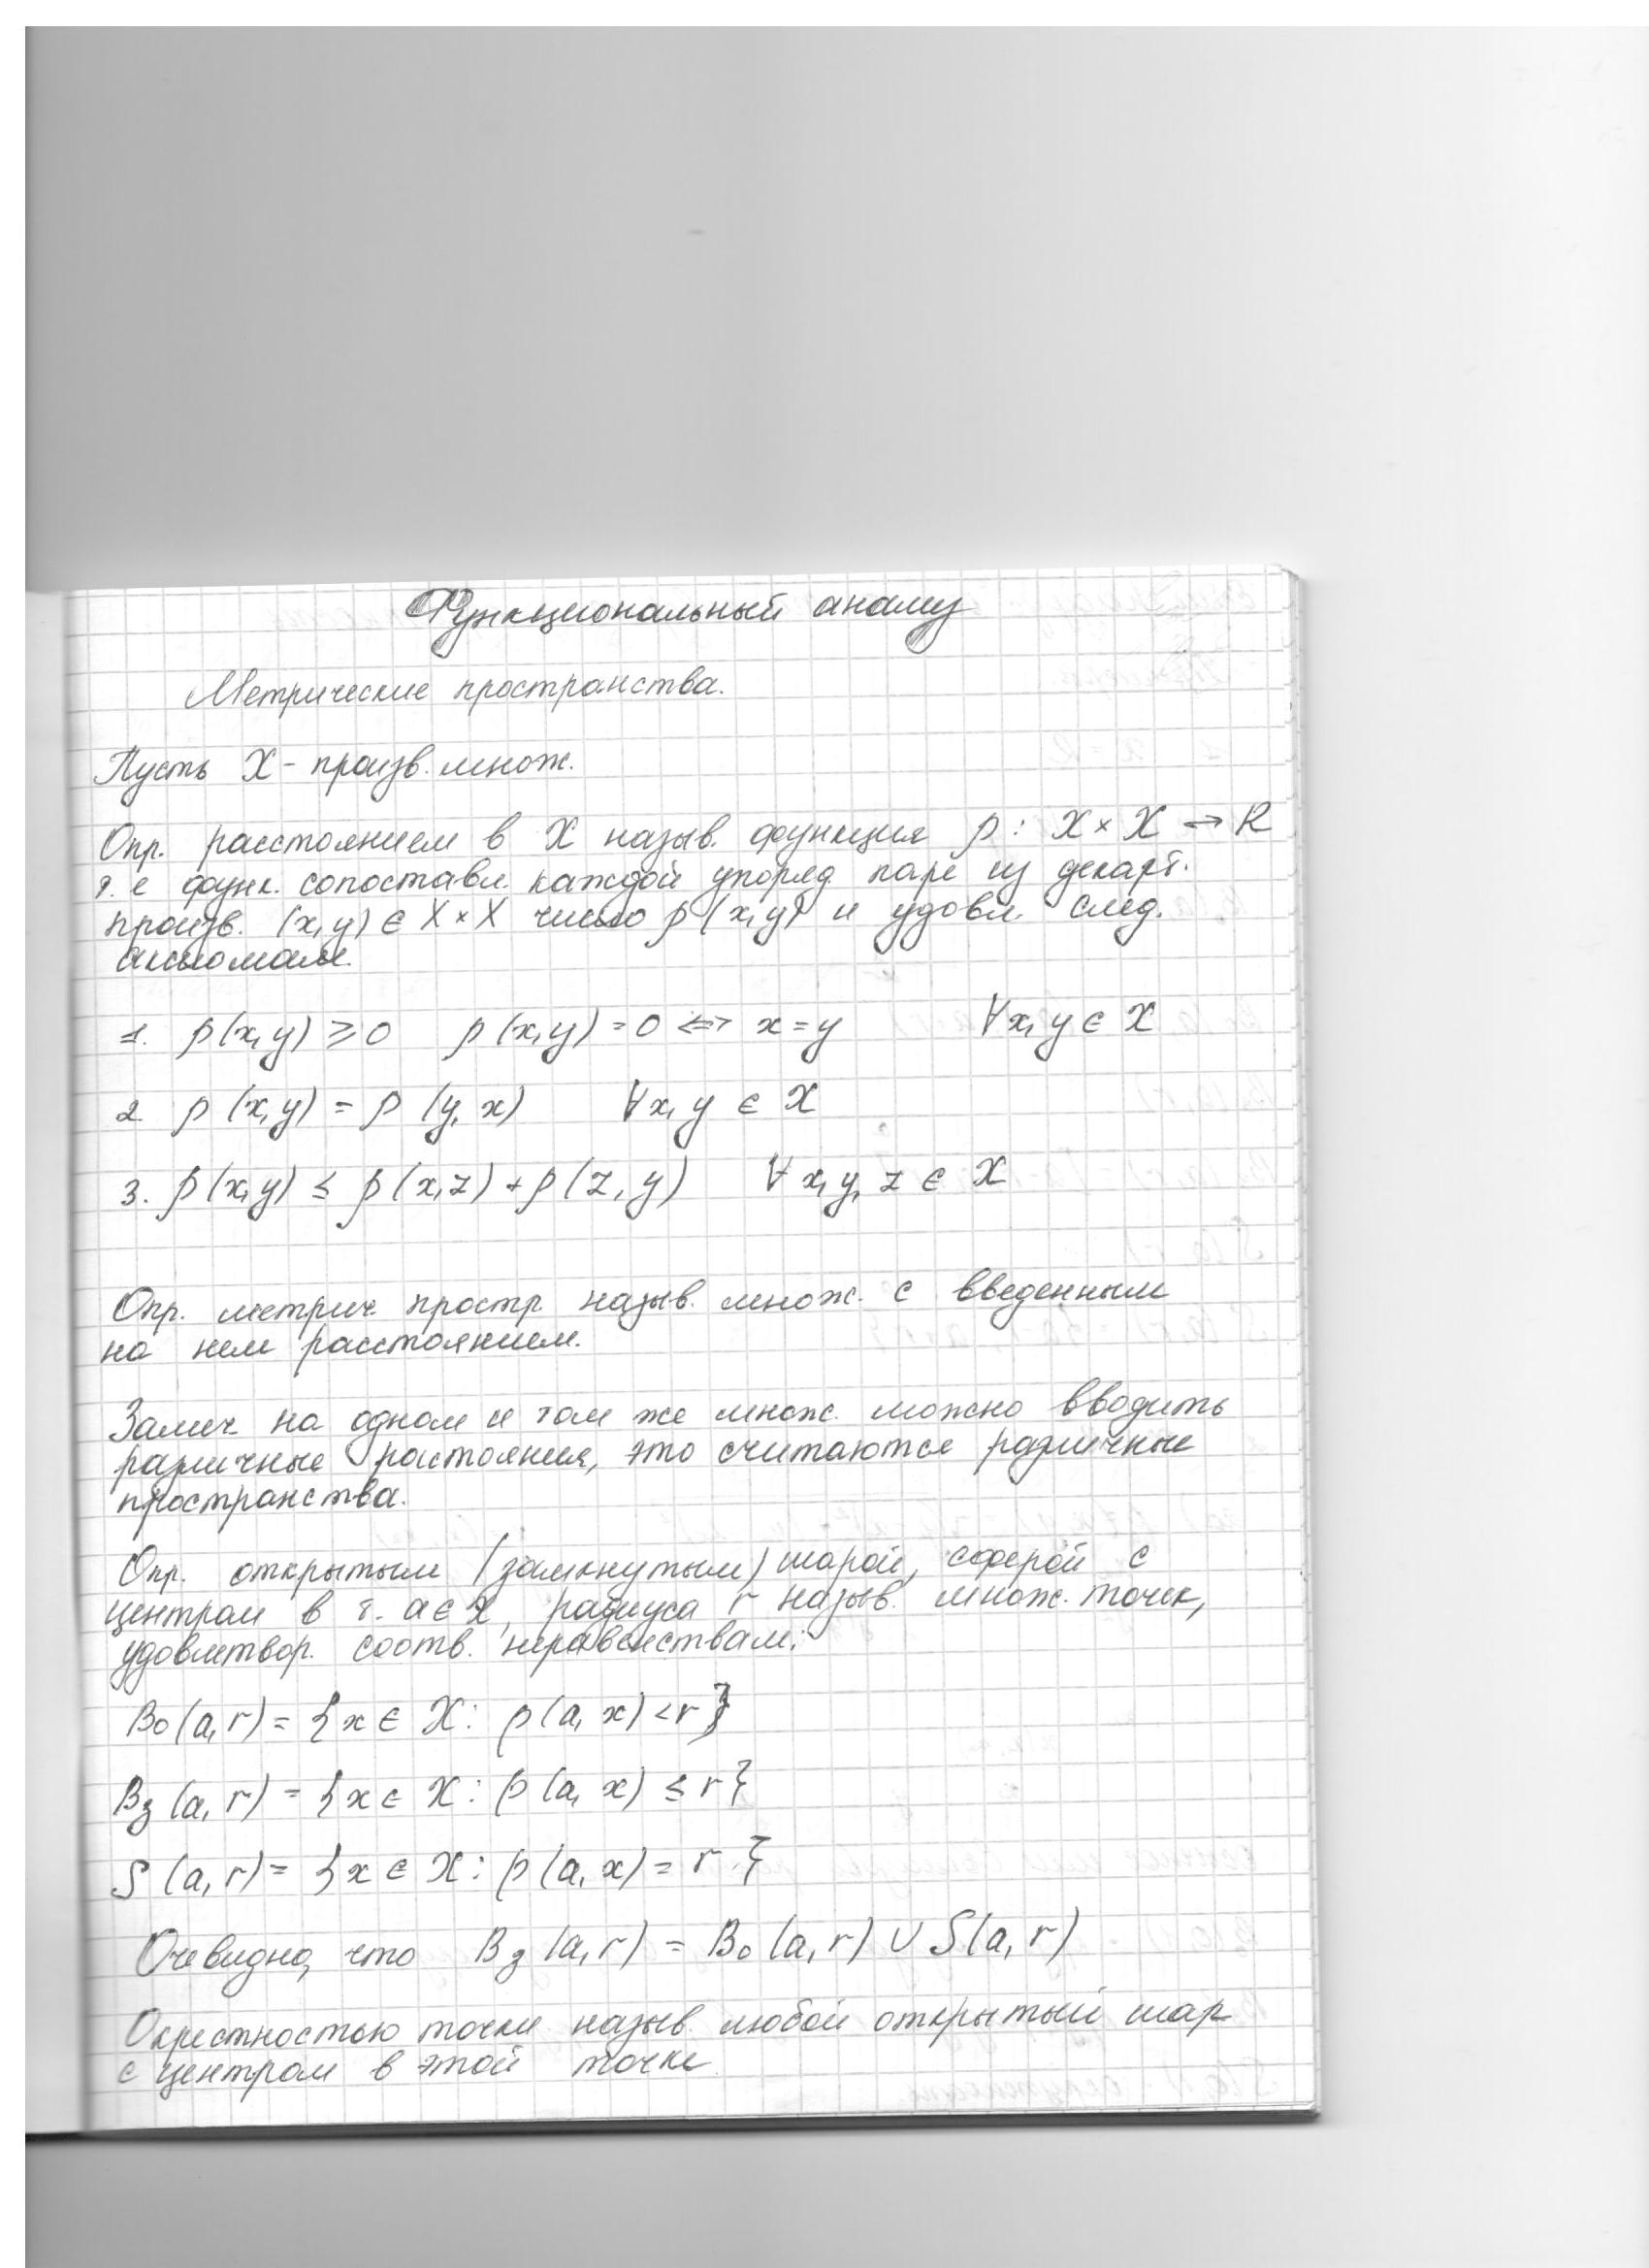 Функциональный анализ
Метрические пространства.
Пусть X - произв. множ.
Опр. расстоянием в X назыв. функция ρ: X × X → R
т. е функ. сопоставл. каждой упоряд. паре из декарт.
произв. (x, y) ∈ X × X число ρ(x, y) и удовл. след.
аксиомам.
1. ρ(x, y) ≥ 0 ρ(x, y) = 0 ⇔ x = y ∀x, y ∈ X
2. ρ(x, y) = ρ(y, x) ∀x, y ∈ X
3. ρ(x, y) ≤ ρ(x, z) + ρ(z, y) ∀x, y, z ∈ X
Опр. метрич. простр. назыв. множ. с введенным
на нем расстоянием.
Замеч. на одном и том же множ. можно вводить
различные растояния, это считаются различные
пространства.
Опр. открытым (замкнутым) шарой, сферой с
центром в т. a ∈ X, радиуса r назыв. множ. точек,
удовлетвор. соотв. неравенствам:
Bо(a, r) = {x ∈ X: ρ(a, x) < r}
Bз(a, r) = {x ∈ X: ρ(a, x) ≤ r}
S(a, r) = {x ∈ X: ρ(a, x) = r}
Очевидно, что Bз(a, r) = Bо(a, r) ∪ S(a, r)
Окрестностью точки назыв. любой открытый шар
с центром в этой точке